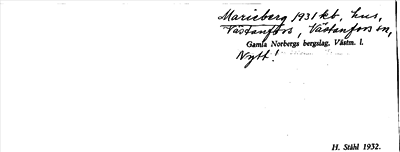 Marieberg 1931 kb, hus,
Västanfors, Västanfors sn,
Gamla Norbergs bergslag. Västm. l.
Nytt!
H. Ståhl 1932.